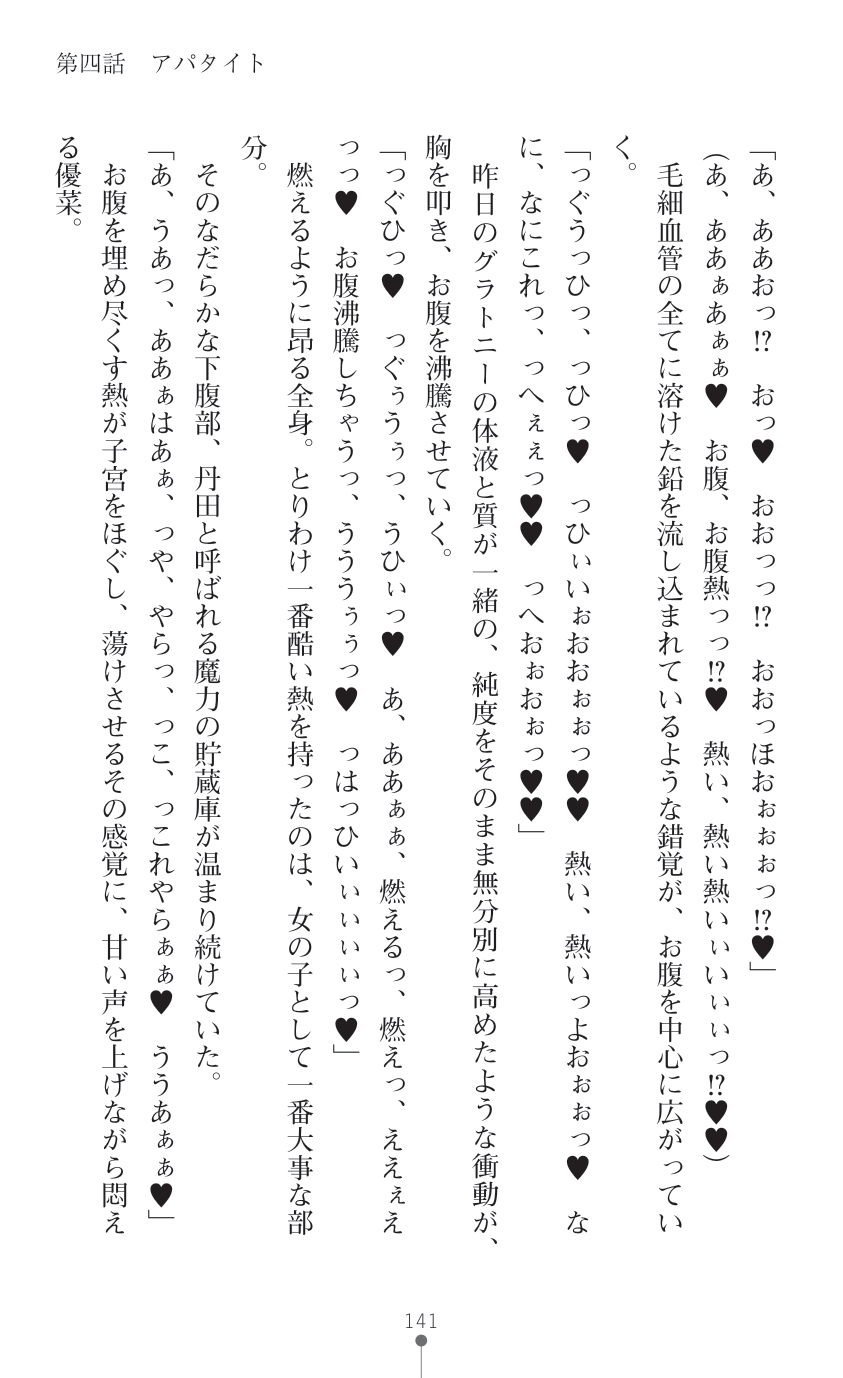 第四話　アパタイト
「あ、ああおっ!?　おっ♥　おおっっ!?　おおっほおぉぉぉっ!?♥」
（あ、ああぁあぁぁ♥　お腹、お腹熱っっ!?♥　熱い、熱い熱いぃいぃぃっ!?♥♥）
　毛細血管の全てに溶けた鉛を流し込まれているような錯覚が、お腹を中心に広がってい
く。
「っぐうっひっ、っひっ♥　っひぃいぉおおぉぉっ♥♥　熱い、熱いっよおぉぉっ♥　な
に、なにこれっ、っへぇぇっ♥♥　っへおぉおぉっ♥♥」
　昨日のグラトニーの体液と質が一緒の、純度をそのまま無分別に高めたような衝動が、
胸を叩き、お腹を沸騰させていく。
「っぐひっ♥　っぐぅうぅっ、うひぃっ♥　あ、ああぁぁ、燃えるっ、燃えっ、ええぇえ
っっ♥　お腹沸騰しちゃうっ、うううぅぅっ♥　っはっひいぃぃぃぃっ♥」
　燃えるように昂る全身。とりわけ一番酷い熱を持ったのは、女の子として一番大事な部
分。
　そのなだらかな下腹部、丹田と呼ばれる魔力の貯蔵庫が温まり続けていた。
「あ、うあっ、ああぁはあぁ、っや、やらっ、っこ、っこれやらぁぁ♥　ううあぁぁ♥」
　お腹を埋め尽くす熱が子宮をほぐし、蕩けさせるその感覚に、甘い声を上げながら悶え
る優菜。
141